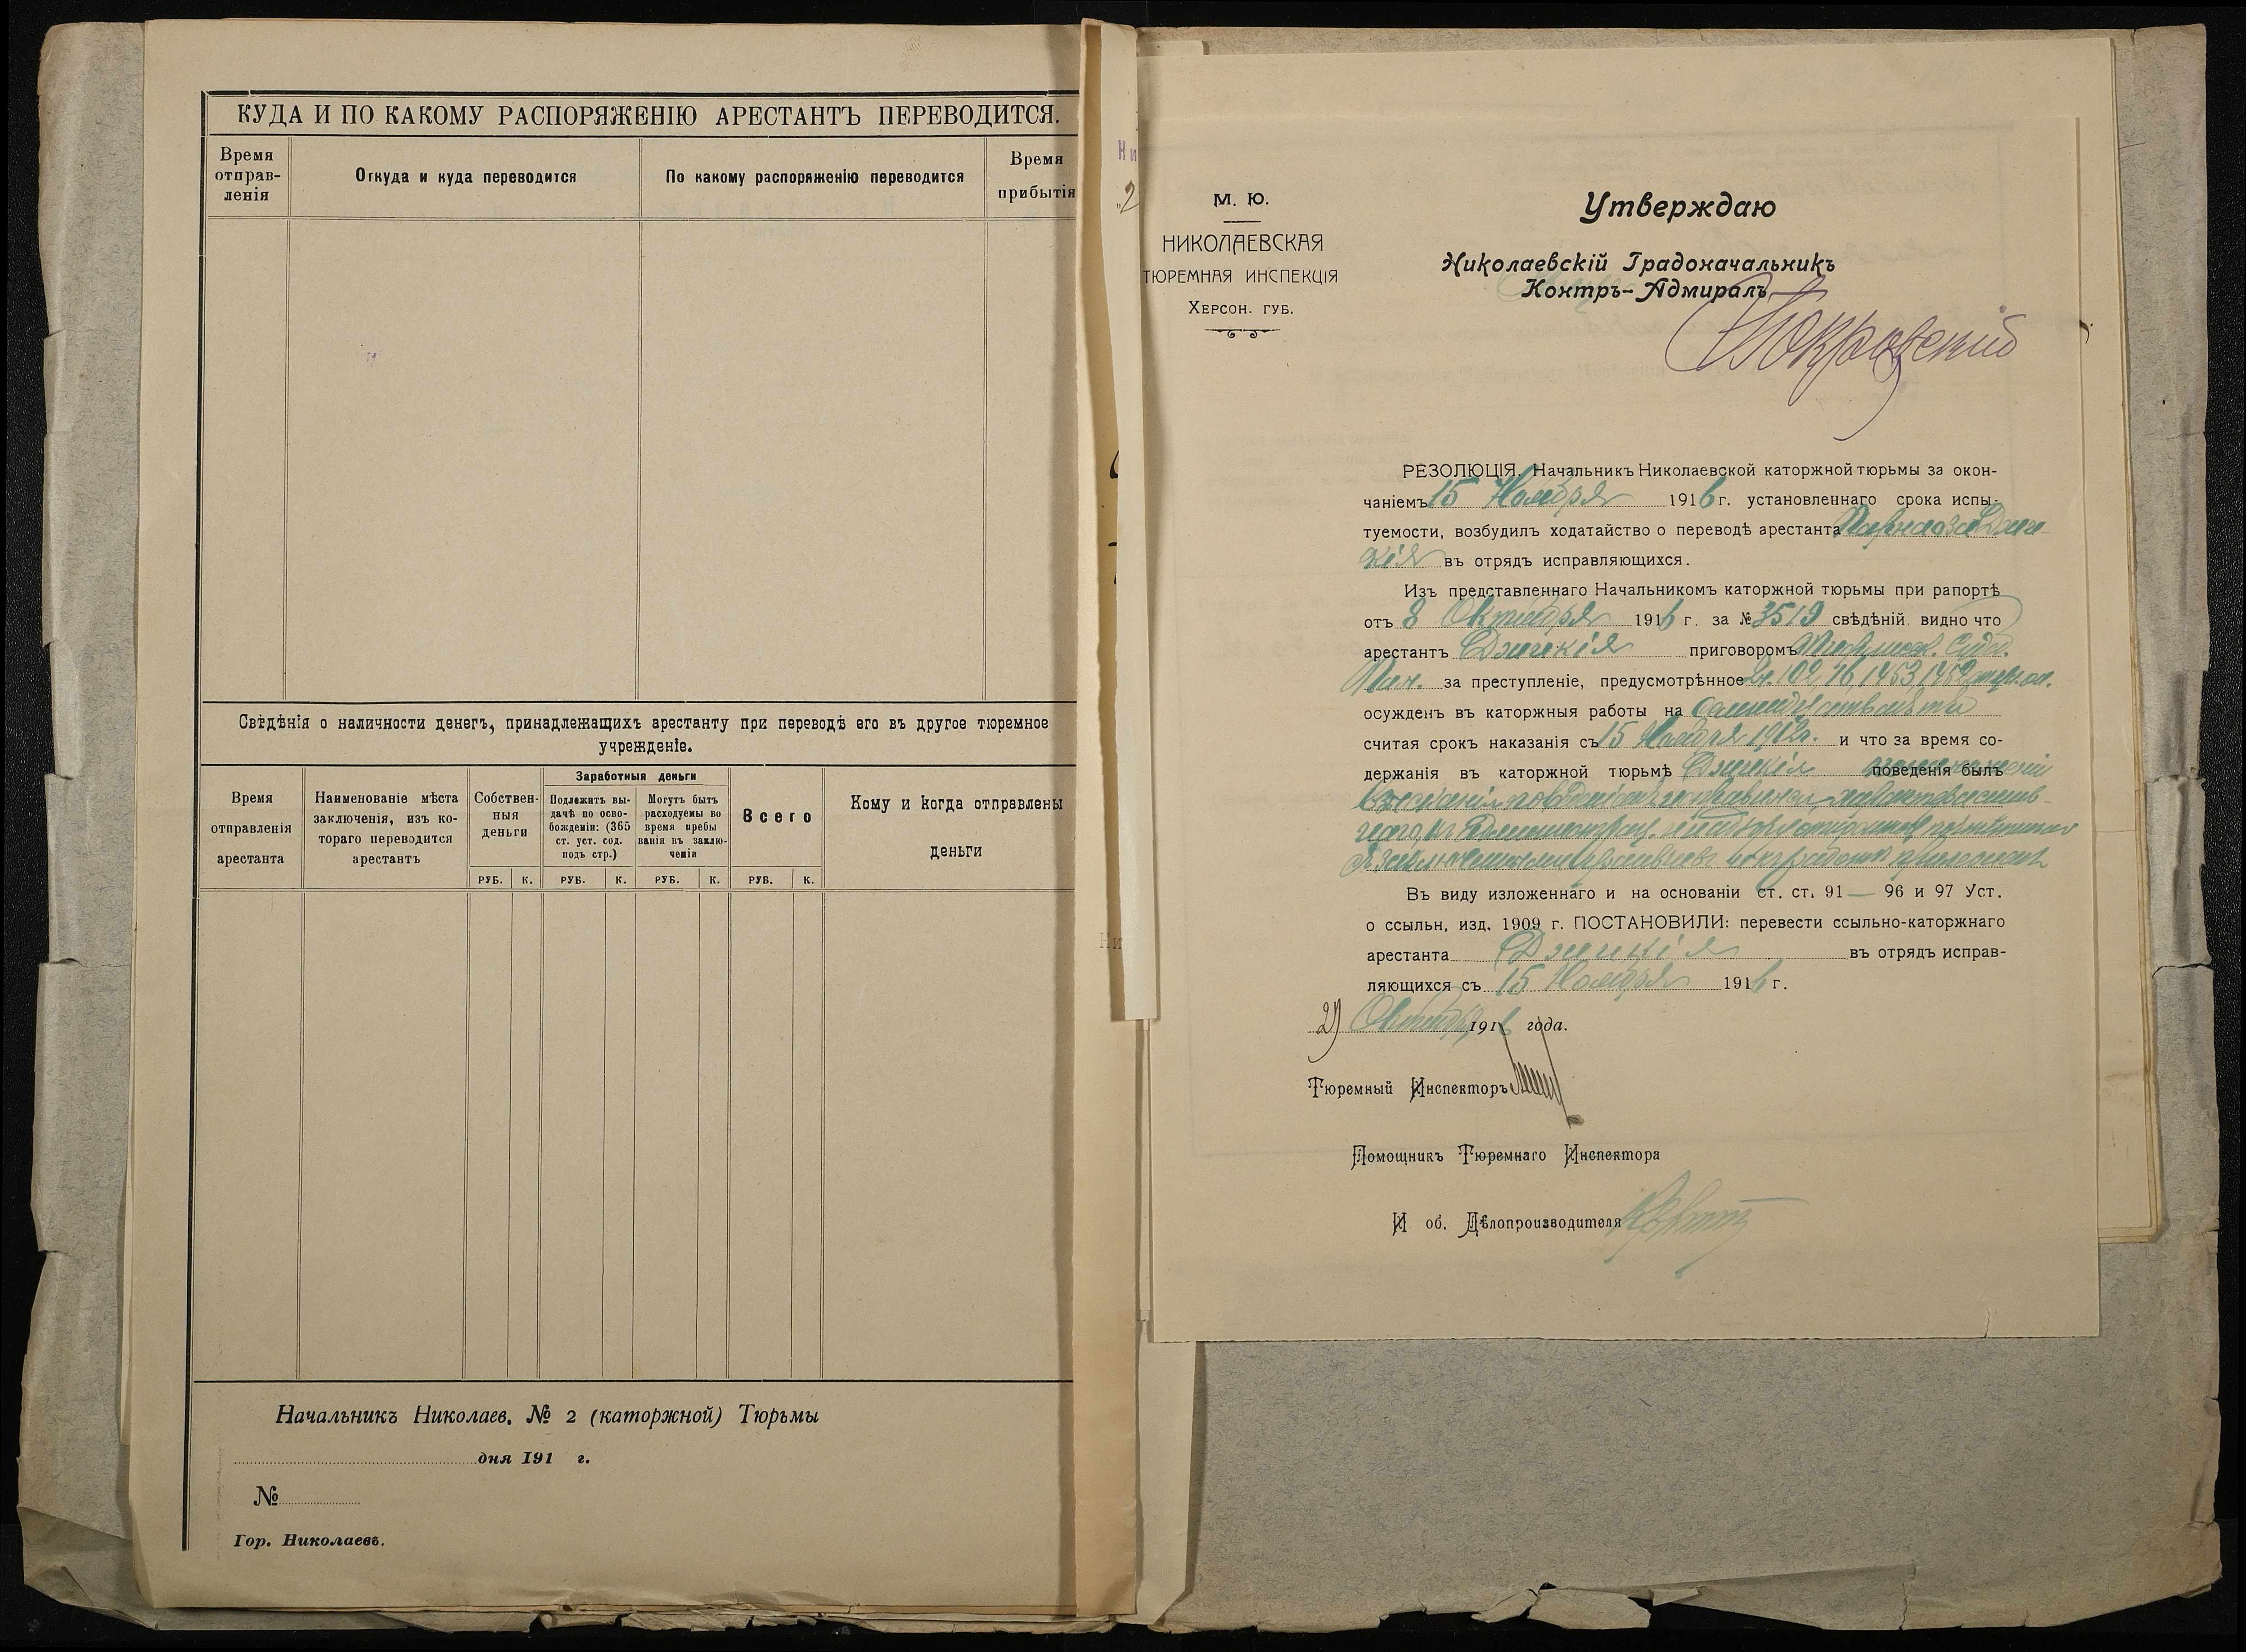 КУДА И ПО КАКОМУ РАСПОРЯЖЕНІЮ АРЕСТАНТЪ ПЕРЕВОДИТСЯ.
Время
отправ-
ленія
Откуда и куда переводится
По какому распоряженію переводится
Время
прибытія
Свѣдѣнія о наличности денегъ, принадлежащихъ арестанту при переводѣ его въ другое тюремное
учрежденіе.
Время
отправленія
арестанта
Наименованіе мѣста
заключенія, изъ ко-
тораго переводится
арестантъ
Собствен-
ныя
деньги
Заработныя деньги
Подлежитъ вы-
дачѣ по осво-
божденіи: (365
ст. уст. сод.
подъ стр.)
Могутъ быть
расходуемы во
время пребы
ванія въ заклю-
ченіи
Всего
Кому и когда отправлены
деньги
РУБ. К. РУБ. К. РУБ. К. РУБ. К.
Начальникъ Николаев. № 2 (каторжной) Тюрьмы
дня 191 г.
№
Гор. Николаевъ.
М. Ю.
НИКОЛАЕВСКАЯ
ТЮРЕМНАЯ ИНСПЕКЦІЯ
ХЕРСОН. ГУБ.
Утверждаю
Николаевскій Градоначальникъ
Контръ-Адмиралъ
Покровскій
РЕЗОЛЮЦІЯ. Начальникъ Николаевской каторжной тюрьмы за окон-
чаніемъ 15 Ноября 1916 г. установленнаго срока испы-
туемости, возбудилъ ходатайство о переводѣ арестанта
кія въ отрядъ исправляющихся.
Изъ представленнаго Начальникомъ каторжной тюрьмы при рапортѣ
отъ 8 Октября 1916 г. за № 3519 свѣдѣній видно что
арестантъ Джикія приговоромъ
за преступленіе, предусмотрѣнное
осужденъ въ каторжныя работы на
считая срокъ наказанія съ 15 Ноября 1912 г. и что за время со-
держанія въ каторжной тюрьмѣ Джикія поведенія былъ
Въ виду изложеннаго и на основаніи ст. ст. 91 — 96 и 97 Уст.
о ссыльн, изд. 1909 г. ПОСТАНОВИЛИ: перевести ссыльно-каторжнаго
арестанта Джикія въ отрядъ исправ-
ляющихся съ 15 Ноября 1916 г.
29 Октября 1916 года.
Тюремный Инспекторъ
Помощникъ Тюремнаго Инспектора
И об. Дѣлопроизводителя